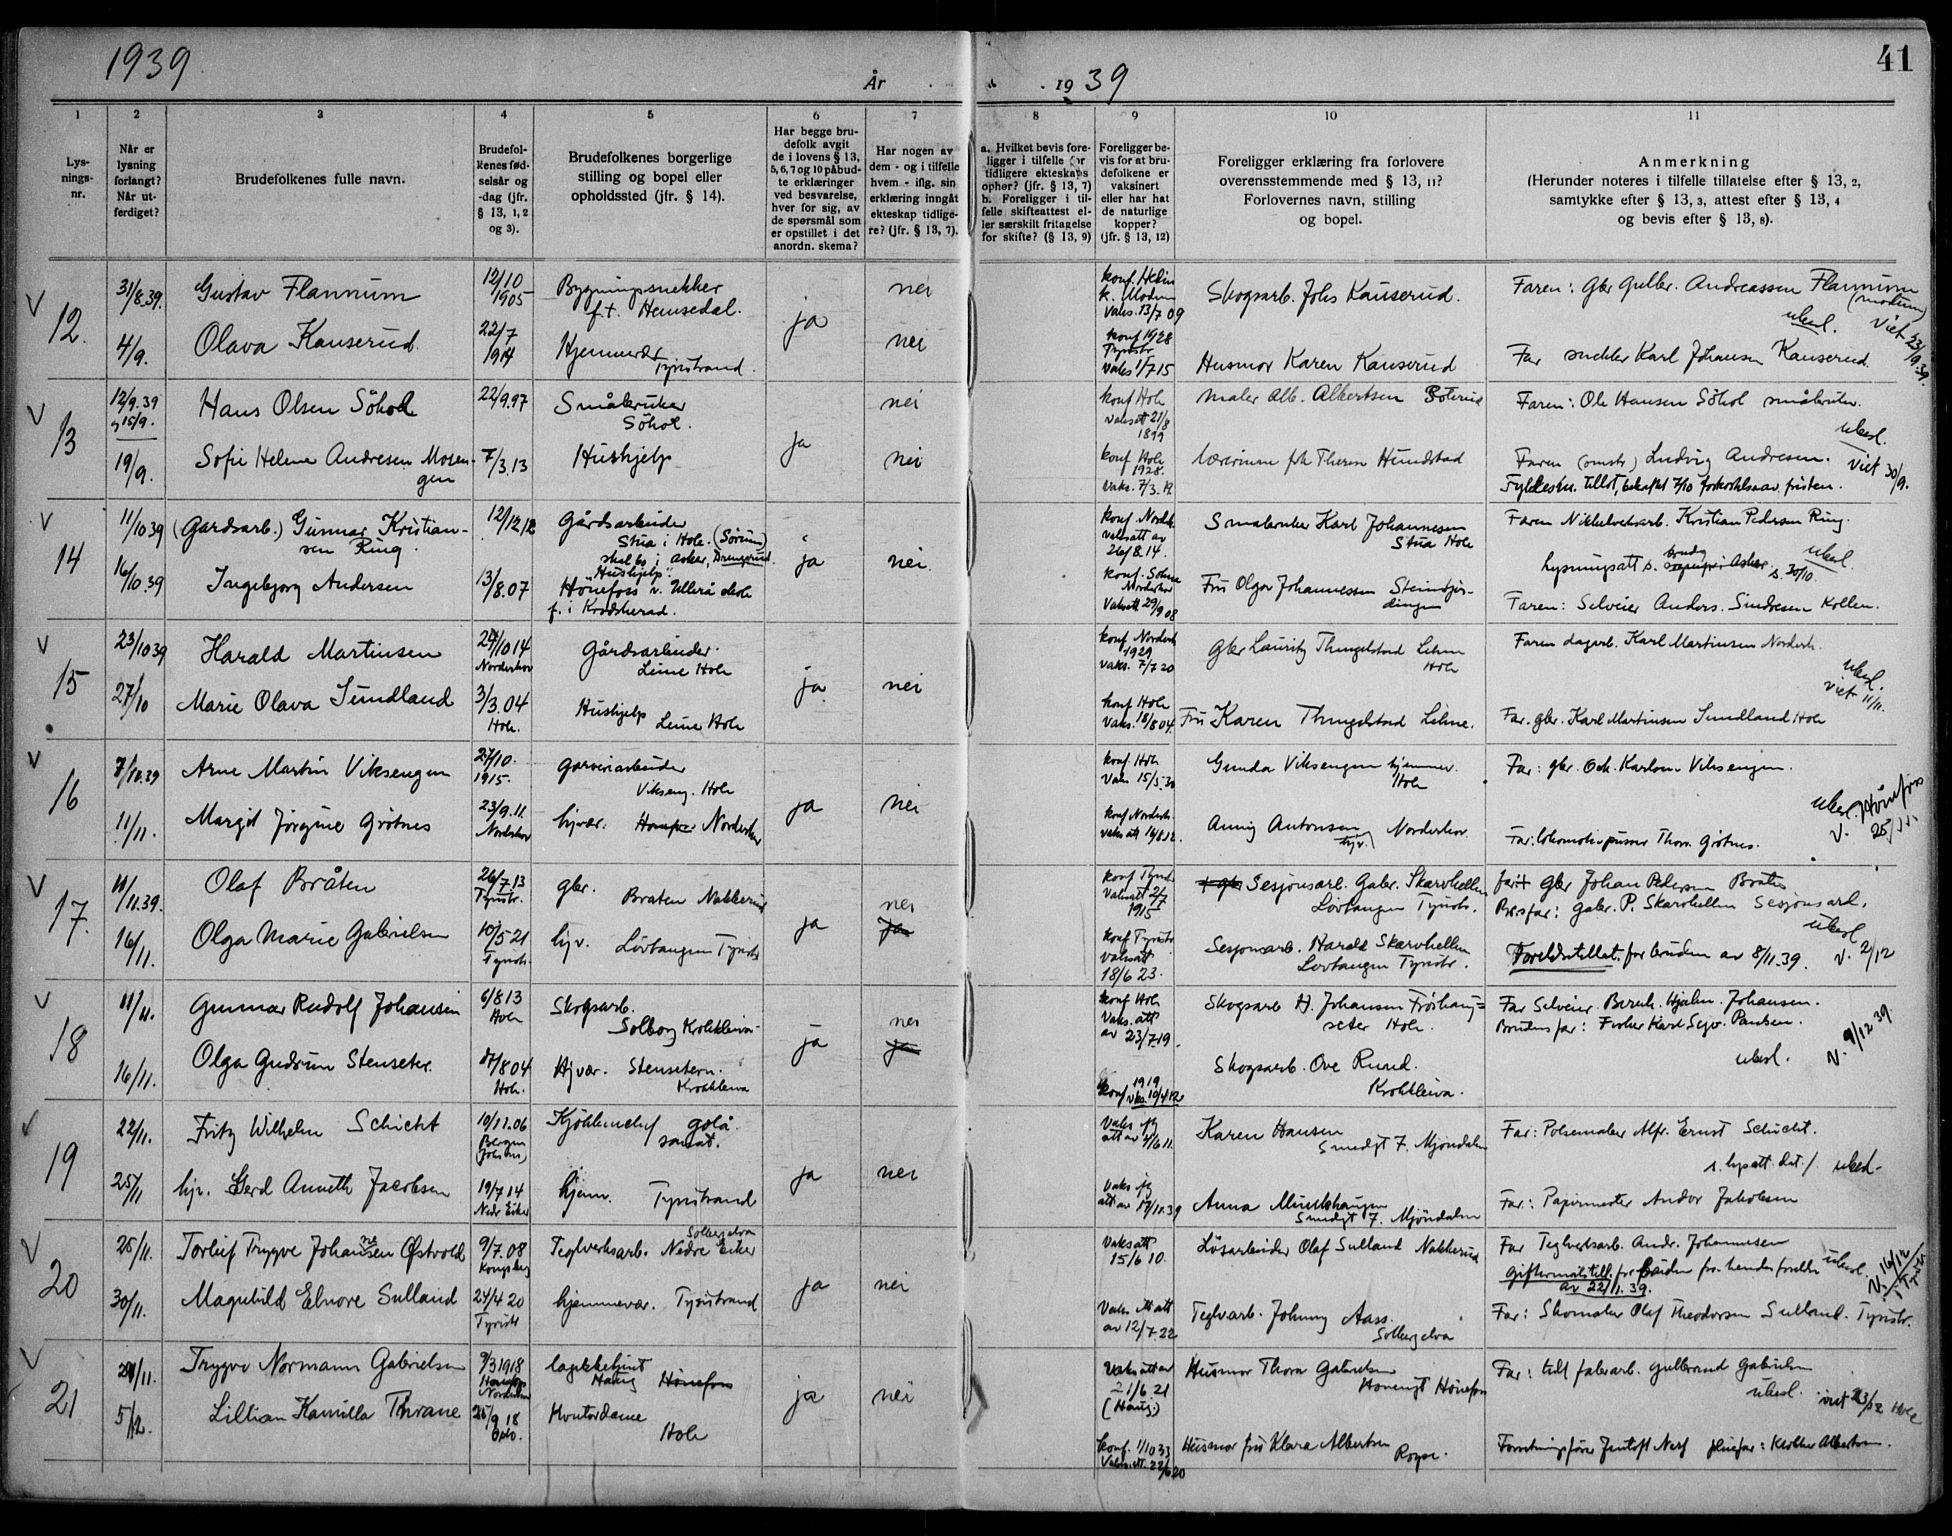 1939
År
19 39
41
1
2
3
4
5
6
7
8
9
10
11
Lys-
nings-
nr.
Når er
lysning
forlangt?
Når ut-
ferdiget?
Brudefolkenes fulle navn.
Brudefol-
kenes fød-
selsår og
-dag (jfr.
§ 13, 1, 2
og 3).
Brudefolkenes borgerlige
stilling og bopel eller
opholdssted (jfr. § 14).
Har begge bru-
defolk avgit
de i lovens § 13,
5, 6, 7 og 10 påbud-
te erklæringer
ved besvarelse,
hver for sig, av
de spørsmål som
er opstillet i det
anordn. skema?
Har nogen av
dem - og i tilfelle
hvem - iflg. sin
erklæring inngåt
ekteskap tidlige-
re? (jfr. § 13, 7).
a. Hvilket bevis fore-
ligger i tilfelle for
tidligere ekteskaps
ophør? (jfr. § 13, 7)
b. Foreligger i til-
felle skifteattest el-
ler særskilt fritagelse
for skifte? (§ 13, 9)
Foreligger be-
vis for at bru-
defolkene er
vaksinert
eller har hat
de naturlige
kopper?
(jfr. § 13, 12)
Foreligger erklæring fra forlovere
overensstemmende med § 13, 11?
Forlovernes navn, stilling
og bopel.
Anmerkning
(Herunder noteres i tilfelle tillatelse efter § 13, 2,
samtykke efter § 13, 3, attest efter § 13, 4
og bevis efter § 13, 8).
12.
31/8.39.
Gustav Flannum
12/10
1905
Bygningssnekker
f.t. Hemsedal.
ja
nei
k. Modum
Vaks. 13/7 09
Skogsarb. Johs Kauserud.
Faren: Gbr Gullbr. Andreassen Flannum
(Modum)
ubesl.
Viet 23/9.39.
4/9.
Olava Kauserud
22/7
1914
Hjemmevær
Tyristrand.
nei
konf 1928
Tyristr.
Vaks 1/7 15
Husmor Karen Kauserud
Far snekker Karl Johansen Kauserud.
13
12/9.39
15/9.
Hans Olsen Søhol
22/9.97
Småbruker
Søhol.
ja
nei
konf Hole
vaksatt 21/8
1899
Maler Alb. Albertsen
Faren: Ole Hansen Søhol småbruker.
ubesl.
Viet 30/9.
19/9.
Sofie Helene Andresen Mosen-
gen
7/3.13
Hushjelp
nei
konf Hole
1928.
Vaks. 7/3.
lærerinne frk Hundstad
Faren (omstr) Ludvig Andresen.
14
11/10 39
(Gardsarb.) Gunnar Kristian-
sen Ring.
12/12 12
Gårdsarbeider
Stua i Hole. (Sørum)
skal bo i Asker,
ja
nei.
konf. Norderh.
Vaksatt av
26/8.14.
Småbruker Karl Johannesen
Stua Hole
Faren Nikkelverkarb. Kristian Pedersen Ring.
ubesl.
16/10.39
Ingebjørg Andersen
13/8.07
"Hushjelp".
Hønefoss v. Ullerå skole
f. i Krødsherad.
Vaksatt 29/9 08
Fru Olga Johannessen
Lysningsatt s. s. 30/10.
Faren: Selveier Anders. Kollen.
15
23/10 39
Harald Martinsen
24/10 14
Norderhov
Gårdsarbeider.
Leine Hole
ja
nei
konf Norderh
1929
vaks. 7/7 20
gbr Lauritz Thingelstad Lehne
Hole
Faren dagarb. Karl Martinsen Norderh.
ubesl.
viet 11/11.
27/10
Marie Olava Sundland
3/3.04
Hole.
Hushjelp Leine Hole
konf Hole
Vaks. 18/8 04.
Fru Karen Thingelstad Lehne.
Far. gbr. Karl Martinsen Sundland Hole
16
7/11.39
Arne Martin Viksengen
27/10.
1915.
Garveriarbeider
Vikseng. Hole
ja
nei
konf. Hole
Vaks 15/5.30
Gunda Viksengen hjemmev.
Hole
Far: gbr. Karlsen Viksengen.
ubesl.
V. Hønefoss 25/11.
11/11.
Margit Jørgine Grøtnes
23/9.11.
Norderhov
hjvær. Hønefoss Norderhov
konf Norderh.
vaksatt 14/8.12.
Antonsen
hjv.
Norderhov.
Far: lokomotivpusser Thorv. Grøtnes.
17.
11/11.39.
Olaf Bråten
26/7.13
Tyristr.
gbr.
Bråten Nakkerud
ja
nei
ja
konf Tyristr
Vaksatt 2/7
1915
Sesjonsarb. Gabr. Skarvhellen
Løvtangen Tyristr.
far: gbr Johan Pedersen Bråten
Brs far: Gabr. P. Skarvhellen Sesjonsarb.
ubesl
v. 2/12
16/11.
Olga Marie Gabrielsen
10/5 21
Tyristr.
hjv. Løvtangen Tyristr
konf Tyristr
Vaksatt
18/6 23.
Sesjonsarb. Harald Skarvhellen
Løvtangen Tyristr.
Foreldretillat. for bruden av 8/11.39.
18
11/11.
Gunnar Rudolf Johansen
6/8 13
Hole
Skogsarb.
Solborg Krokkleiva.
ja
nei
ja
konf Hole
Vaks. att
av 23/7.19.
Skogsarb H. Johansen Frøshaug-
seter Hole.
Far Selveier Bernh. Hjalm. Johansen.
Brudens far: Fisker Karl Sigv. Paulsen.
ubesl.
V. 9/12 39.
16/11.
Olga Gudrun Stenseter.
/8 04
Hole.
Hjvær. Stensetern.
Krokkleiva
1919
konf vaks. 10/4 12
Skogsarb. Ove Rund.
Krokkleiva.
19
22/11.
Fritz Wilhelm Schicht
10/11.06
Bergen
Kjøkkenchef Golå
sanat.
ja
nei
Karen Hansen
Smedgt 7. Mjøndalen
Far: Pølsemaker Alfr. Ernst Schicht.
ubesl-
25/11
hjv. Gerd Anneth Jacobsen
19/7 14
Nedr Eiker
hjemv. Tyristrand
Anna
Smedgt 7. Mjøndalen
Far: Papirmester Andor Jakobsen
20
25/11.
Torleif Trygve Johansen Østvold
9/7.08
Kongsberg
Solbergelva
Teglverksarb. Nedre Eiker
ja
nei
Vaksatt
15/6 10.
Løsarbeider Olaf Sulland Nakkerud
Far Teglverksarb. Andr. Johannesen
Giftermålstill. for bruden fra hendes foreldre
av 22/11.39.
ubesl.
V. 16/12
Tyristr.
30/11.
Magnhild Elnore Sulland
24/4 20
Tyristr
hjemmevær. Tyristrand
Vaks. att
av 12/7.22
Teglvarb. Johnny Aass.
Solbergelva
Far: Skomaker Olaf Theodorsen Sulland. Tyristr.
21
/11.
Trygve Normann Gabrielsen
9/3 1918
Hønefoss
Norderhov
Haug Hønefoss
ja
nei
Vaksatt av
21/6.21
(Haug.)
Husmor Thora Gabrielsen
Hønefoss
Far: Gulbrand Gabrielsen
ubesl. viet 23/12 Hole
5/12.
Lillian Kamilla Thrane
25/9 18
Oslo.
Kontordame
Hole
konf. 1/10 33
Vaks. att. 22/6 20
Husmor fru Klara Albertsen
Røyse.